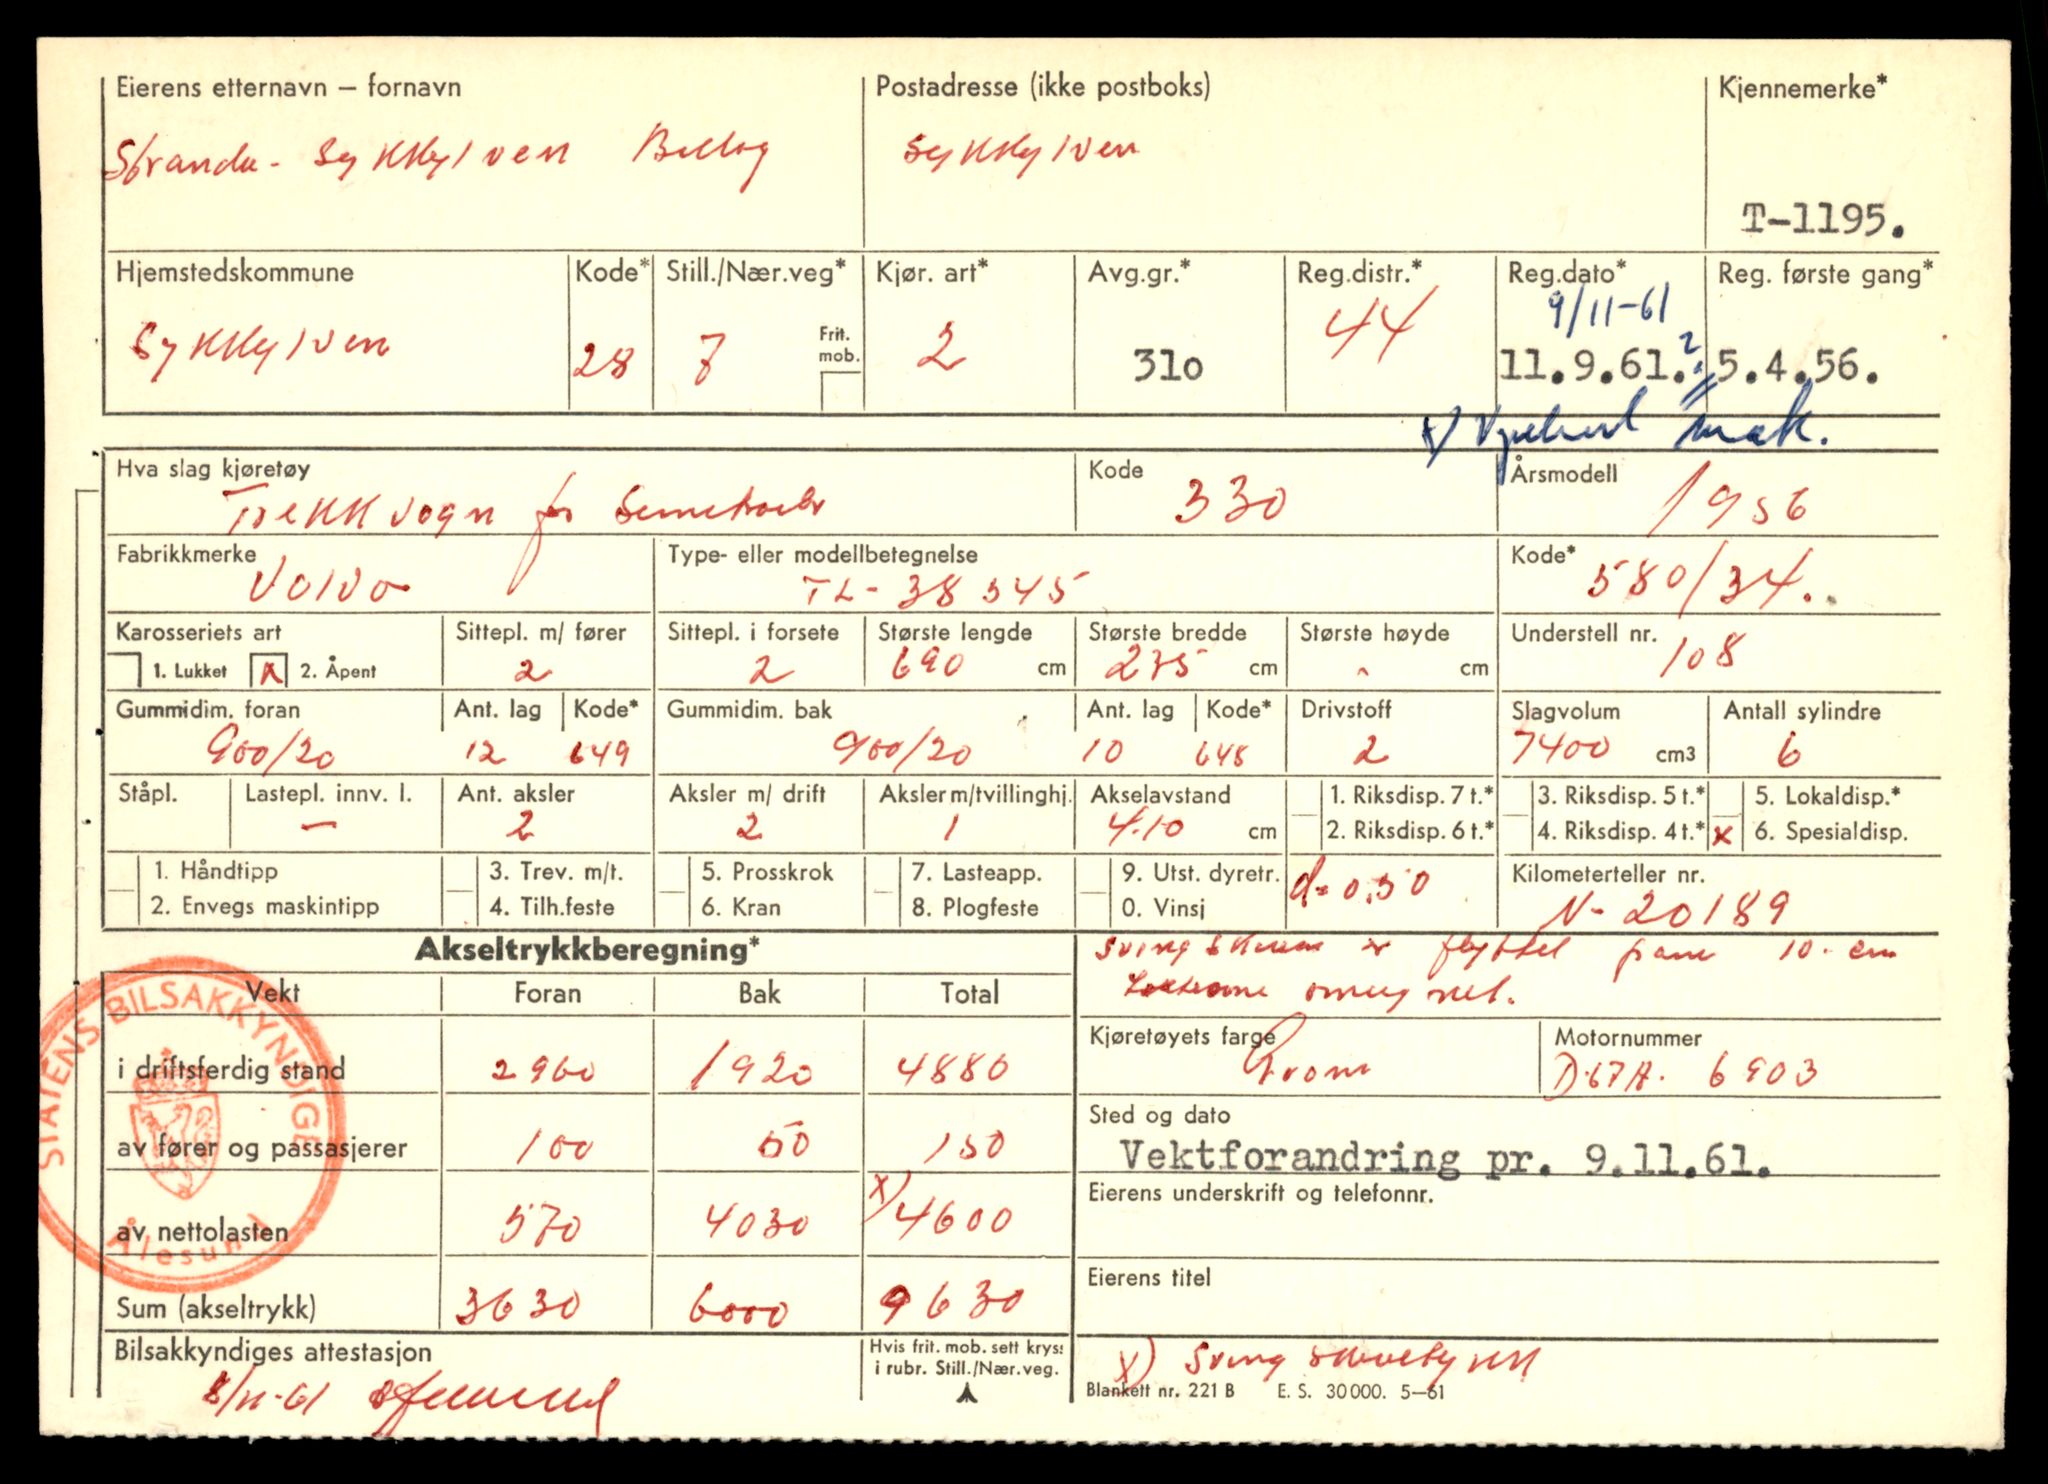 Eierens etternavn – fornavn Postadresse (ikke postboks) Kjennemerke*
Stranda - Sykkylven Billag Sykkylven
T-1195.
Hjemstedskommune Kode* Still./Nær.veg* Kjør. art* Avg.gr.* Reg.distr.* Reg.dato* Reg. første gang*
9/11-61
Sykkylven 28 7 Frit. mob. 2 310 44 11.9.61. ? 5.4.56.
x) mek.
Hva slag kjøretøy Kode Årsmodell
Trekkvogn for 330 1956
Fabrikkmerke Type- eller modellbetegnelse Kode*
Volvo TL-38545 580/34.
Karosseriets art Sittepl. m/ fører Sittepl. i forsete Største lengde Største bredde Største høyde Understell nr.
1. Lukket x 2. Åpent 2 2 690 cm 275 cm - cm 108
Gummidim. foran Ant. lag Kode* Gummidim. bak Ant. lag Kode* Drivstoff Slagvolum Antall sylindre
900/20 12 649 900/20 10 648 2 7400 cm3 6
Ståpl. Lastepl. innv. l. Ant. aksler Aksler m/ drift Aksler m/tvillinghj. Akselavstand 1. Riksdisp. 7 t.* 3. Riksdisp. 5 t.* 5. Lokaldisp.*
— 2 2 1 4.10 cm 2. Riksdisp. 6 t.* 4. Riksdisp. 4 t.* x 6. Spesialdisp.
1. Håndtipp 3. Trev. m/t. 5. Prosskrok 7. Lasteapp. 9. Utst. dyretr. d=0,50 Kilometerteller nr.
2. Envegs maskintipp 4. Tilh.feste 6. Kran 8. Plogfeste 0. Vinsj N-20189
Akseltrykkberegning*
er flyttet 10 cm
Vekt Foran Bak Total
Kjøretøyets farge Motornummer
i driftsferdig stand 2960 1920 4880
Grønn D.67A. 6903
Sted og dato
av fører og passasjerer 100 50 150
Vektforandring pr. 9.11.61.
Eierens underskrift og telefonnr.
av nettolasten 570 4030 x) 4600
Eierens titel
Sum (akseltrykk) 3630 6000 9630
Bilsakkyndiges attestasjon Hvis frit. mob. sett kryss
i rubr. Still./Nær.veg.
x) Sving
8/11-61
Blankett nr. 221 B E. S. 30 000. 5–61
STATENS BILSAKKYNDIGE
Ålesund